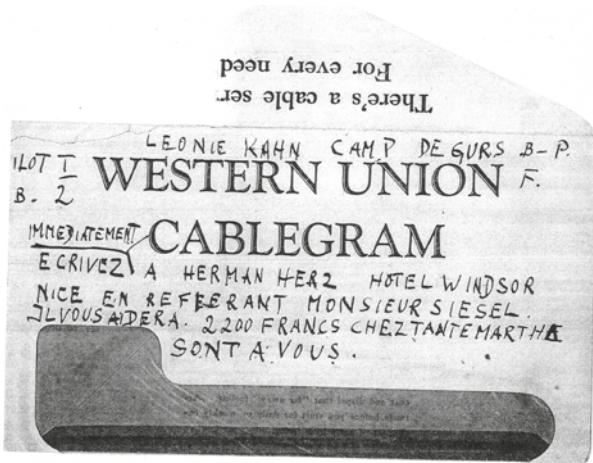 There's a cable ser
For every need
LEONIE KAHN CAMP DE GURS B-P.
ILOT I F.
B. 2
WESTERN UNION
CABLEGRAM
IMMEDIATEMENT
ECRIVEZ A HERMAN HERZ HOTEL WINDSOR
NICE EN REFEERANT MONSIEUR SIESEL.
IL VOUS AIDERA. 2200 FRANCS CHEZ TANTE MARTHE
SONT A VOUS.